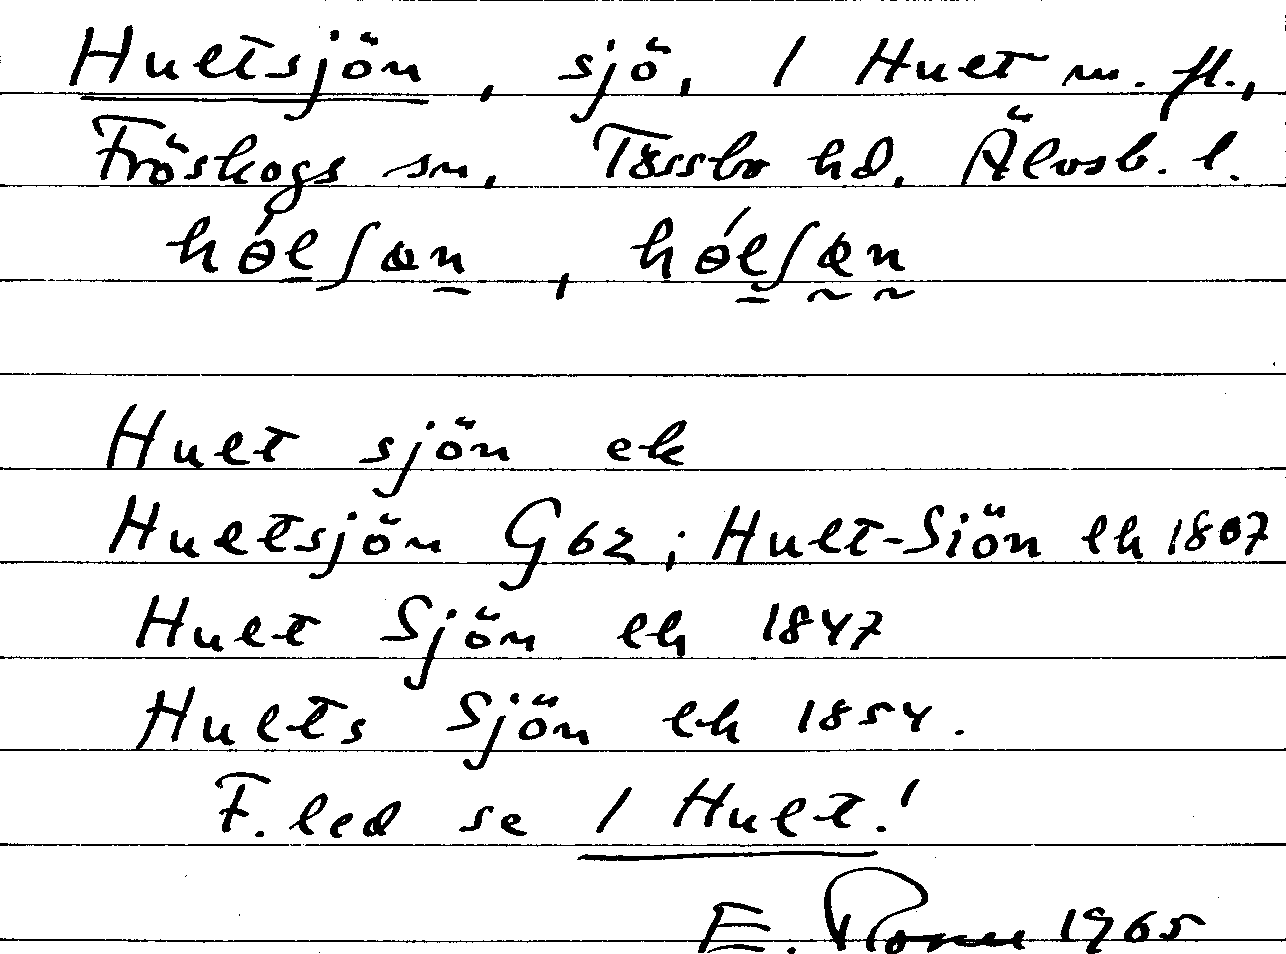 Hultsjön, sjö, 1 Hult m. fl.,
Fröskogs sn, Tössbo hd, Älvsb. l.
hɵ́lʃɷn, hɵ́lʃɷn
Hult sjön ek
Hultsjön G62; Hult-Siön ek 1807
Hult Sjön ek 1847
Hults Sjön ek 1854.
F. led se 1 Hult!
E. 1965